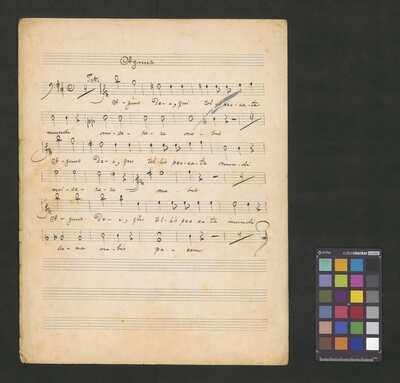 Agnus
Tutti
A-gnus De-i, qui tol-lis pec-ca-ta
mundi mi-se-re-re no-bis
A-gnus De-i, qui tol-lis pec-ca-ta mun-di
mi-se-re-re no-bis
A-gnus De-i, qui tol-lis pec-ca-ta mundi
do-na nobis pa-cem